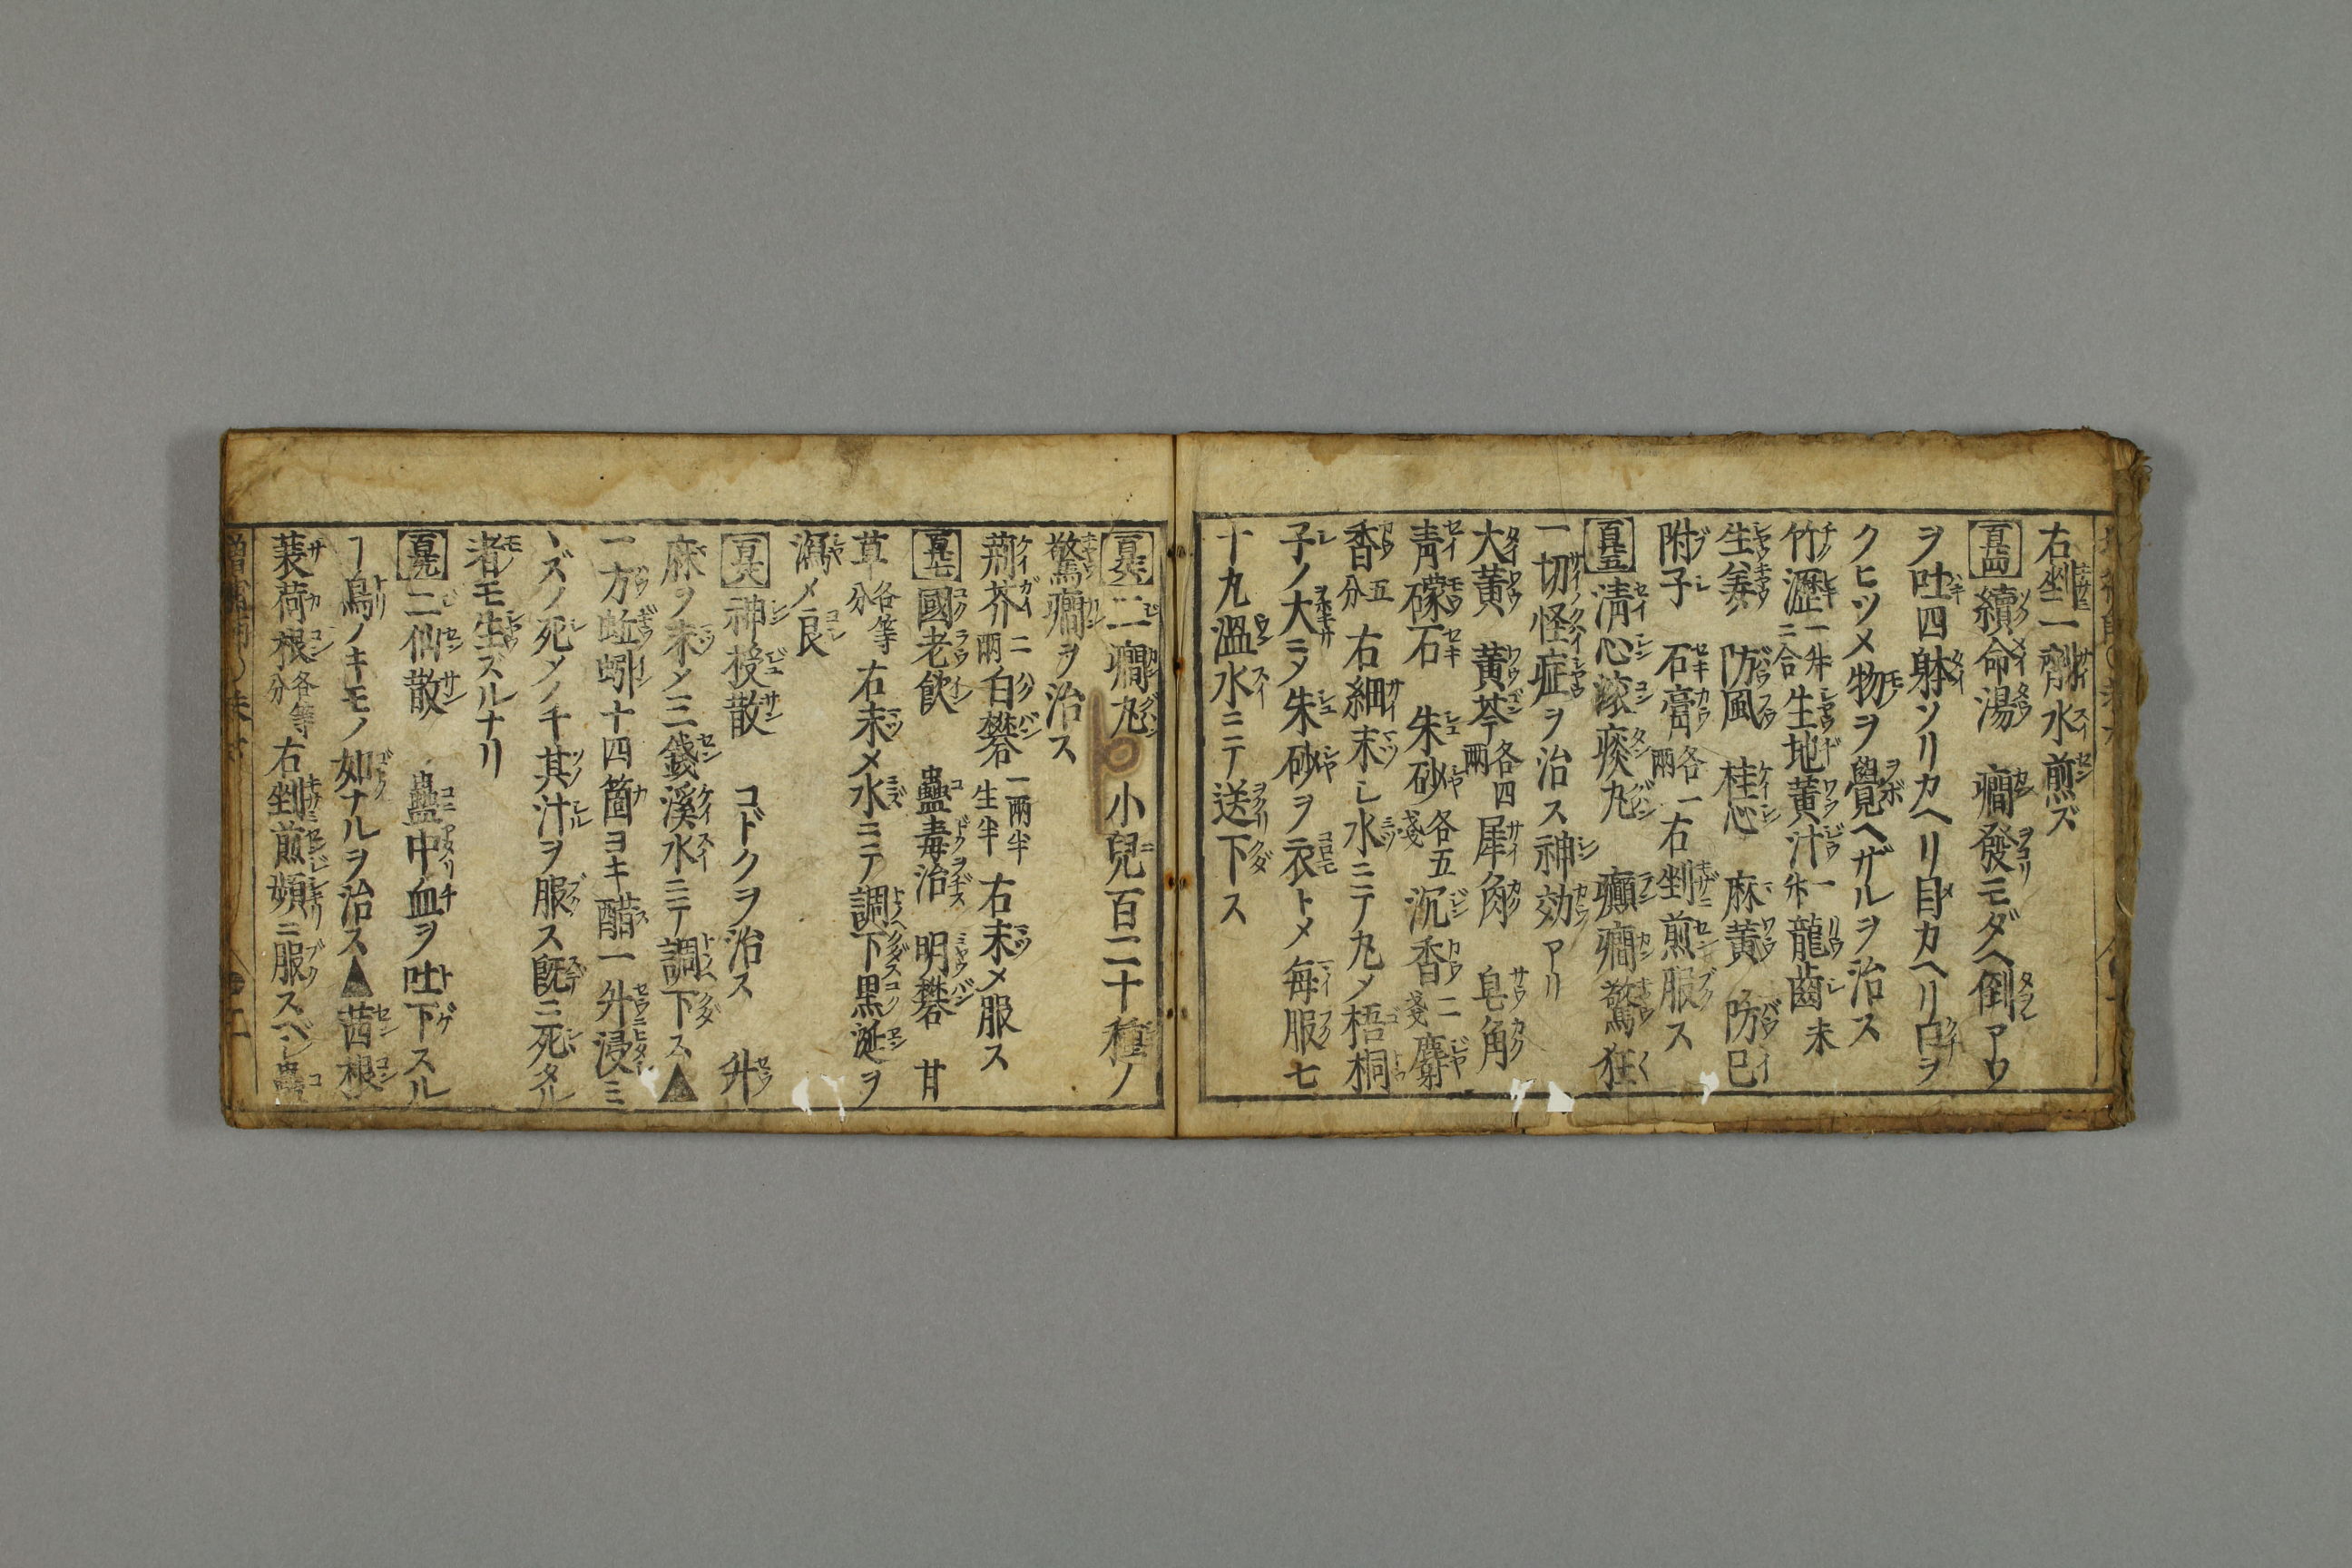 右剉一劑水煎ズ
百四 續命湯 癇發ニモダヘ倒アワ
ヲ吐四躰ソリカヘリ目カヘリ白ヲ
クヒツメ物ヲ覺ヘザルヲ治ス
竹瀝一升二合生地黃汁一升龍齒末
生姜 防風 桂心 麻黃 防已
附子 石膏各一兩右剉煎服ス
百五 淸心滚痰丸 癲癇驚狂
一切怪症ヲ治ス神効アリ
大黃 黃芩各四兩犀角 皂角
青礞石 朱砂各五戔沉香二戔麝
香五分 右細末シ水ニテ丸メ梧桐
子ノ大ニメ朱砂ヲ衣トメ每服七
十丸溫水ニテ送下ス
百六 二癇丸 小兒百二十種ノ
驚癇ヲ治ス
荊芥二兩白礬一兩半生半 右末メ服ス
百七 國老飲 蠱毒治 明礬 甘
草各等分 右末メ水ニテ調下黒涎ヲ
瀉メ良
百八 神授散 コドクヲ治ス 升
麻ヲ末メ三錢溪水ニテ調下ス▲
一方蚯蚓十四箇ヨキ醋一升浸ミ
ミズノ死メノチ其汁ヲ服ス既ニ死タル
者モ生ズルナリ
百九 二仙散 蠱中血ヲ吐下スル
ヿ鳥ノキモノ如ナルヲ治ス▲茜根
蘘荷根各等分右剉煎頻ニ服スベシ蠱